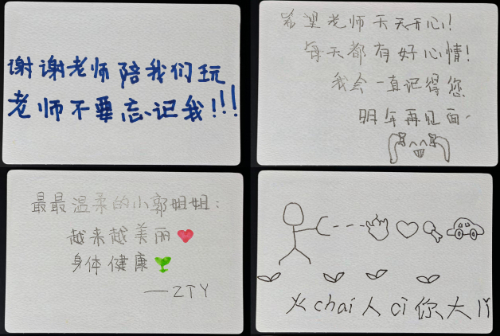 谢谢老师陪我们玩
老师不要忘记我!!!
希望老师天天开心!
每天都有好心情!
我会一直记得您
明年再见面
最最温柔的小郭姐姐:
越来越美丽
身体健康
——ZTY
火chai人ci你大